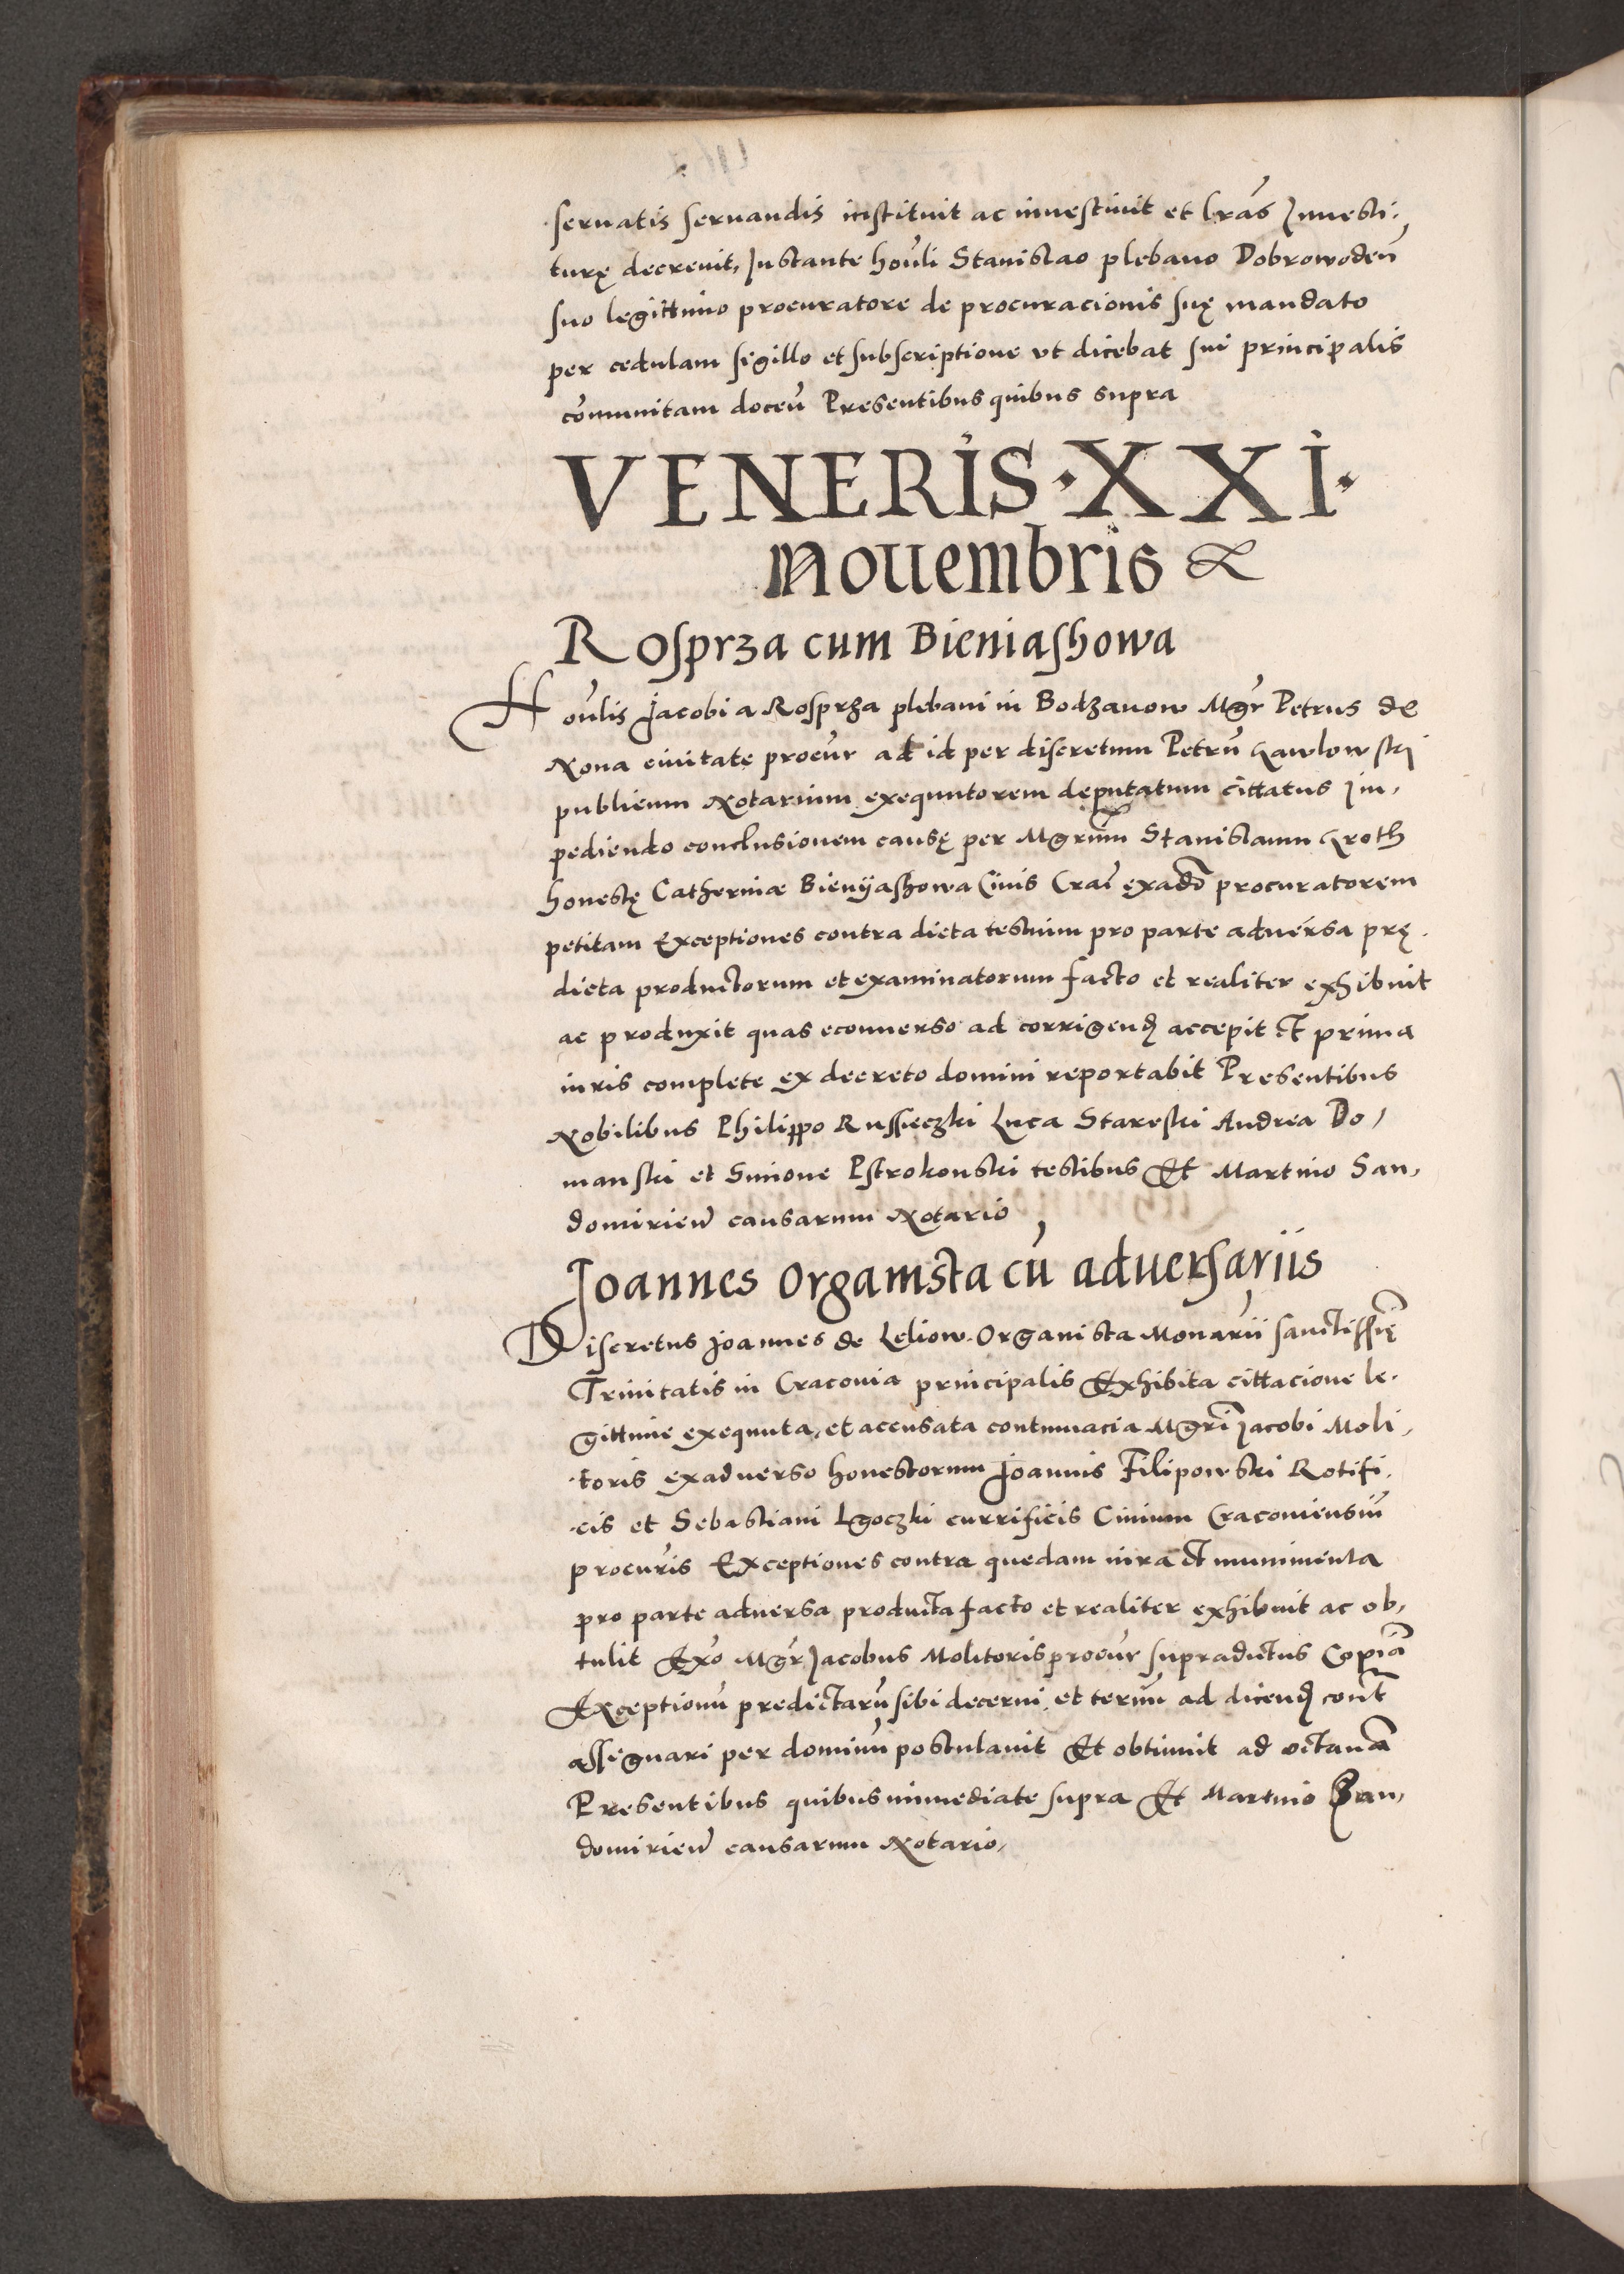 servatis servandis instituit ac investivit et lrãs Investi-
turę decrevit, Instante hoñli Stanislao plebano Dobrowodeñ
suo legittimo procuratore de procuracionis suę mandato
per cedulam sigillo et subscriptione ut dicebat sui principalis
cõmunitam doceñ Presentibus quibus supra
VENERIS · XXI ·
Novembris &
Rosprza cum Bieniashowa
Hoñlis Jacobi a Rosprza plebani in Bodzanow Mgr̃ Petrus de
Nona civitate procur̃ ad id per discretum Petrũ Gawlowski
publicum Notarium exequutorem deputatum cittatus Im-
pediendo conclusionem causę per Mgrum̃ Stanislaum Groth
honestę Catherinæ Bienyashowa Civis Craĩ exadṽ procuratorem
petitam Exceptiones contra dicta testium pro parte adversa prę-
dicta productorum et examinatorum facto et realiter exhibuit
ac produxit quas econverso ad corrigend̃ accepit et prima
iuris complete ex decreto domini reportabit Presentibus
Nobilibus Philippo Russieczki Luca Stareski Andrea Do-
manski et Simone Pstrokonski testibus Et Martino San-
domirieñ causarum Notario
Joannes Organista cũ adversariis
Discretus Joannes de Leliow Organista Monarii sanctissię̃
Trinitatis in Cracovia principalis Exhibita cittacione le-
gittime exequuta, et accusata contumacia Mgri Jacobi Moli-
toris exadverso honestorum Joannis Filipowski Rotifi-
cis et Sebastiani Lgoczki currificis Civium Cracoviensiũ
procuris Exceptiones contra quedam iura et munimenta
pro parte adversa producta facto et realiter exhibuit ac ob-
tulit Exõ Mgr̃ Jacobus Molitoris procur̃ supradictus Copiã
Exceptionũ predictarũ sibi decerni et termĩ ad dicend̃ cont̃
assignari per dominũ postulavit Et obtinuit ad octavã
Presentibus quibus immediate supra Et Martino San-
domirieñ causarum Notario,